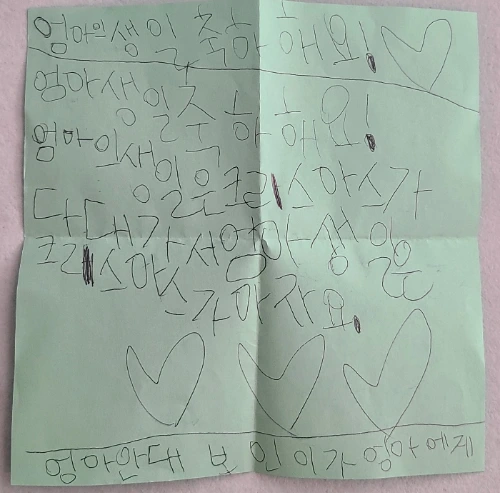 엄마의생일 축하해요!
엄마생일축하해요!
엄마의생일은크리스마스가
달대가
크리스맛서엄마성일은
스가마자요.
엄마안대 보인이가엉아에제